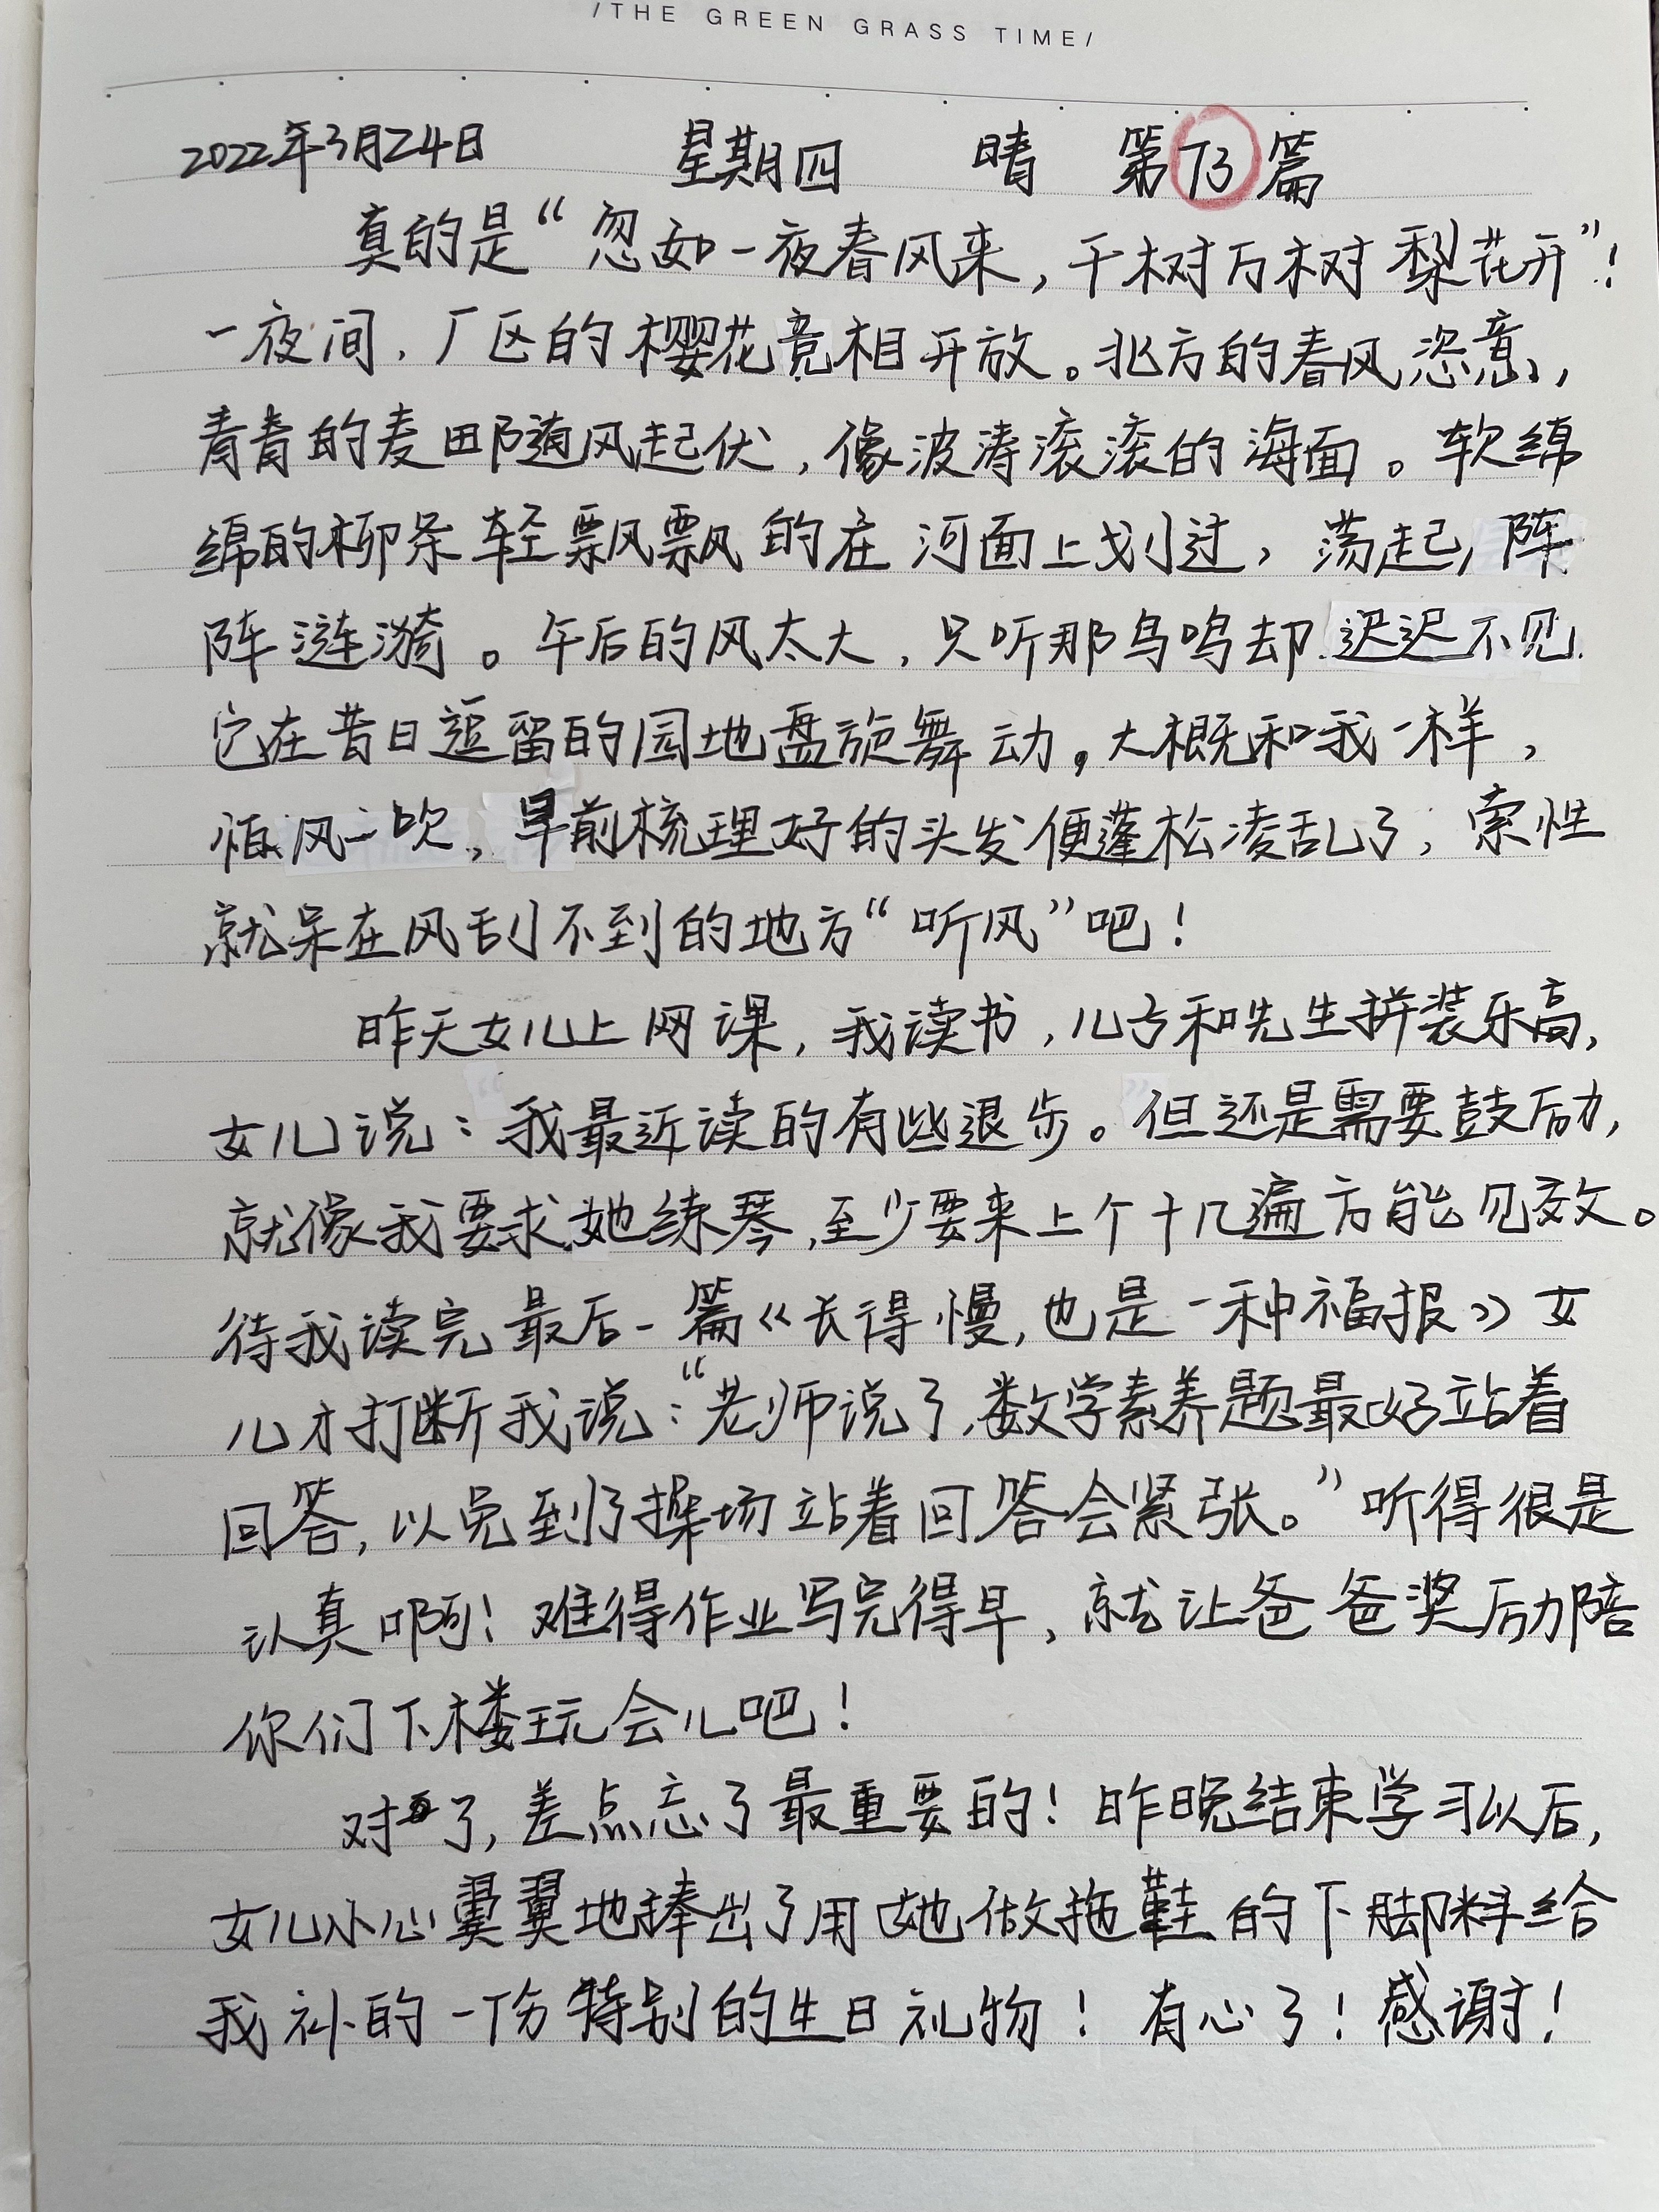 /THE GREEN GRASS TIME/
2022年3月24日 星期四 晴 第73篇
真的是“忽如一夜春风来,千树万树梨花开”!
一夜间,厂区的樱花竞相开放。北方的春风恣意,
青青的麦田随风起伏,像波涛滚滚的海面。软绵
绵的柳条轻飘飘的在河面上划过,荡起阵
阵涟漪。午后的风太大,只听那鸟鸣却迟迟不见
它在昔日逗留的园地盘旋舞动。大概和我一样,
怕风一吹,早前梳理好的头发便蓬松凌乱了,索性
就呆在风刮不到的地方“听风”吧!
昨天女儿上网课,我读书,儿子和先生拼装乐高,
女儿说:我最近读的有些退步。但还是需要鼓励,
就像我要求她练琴,至少要来上个十几遍方能见效。
待我读完最后一篇《长得慢,也是一种福报》女
儿才打断我说:“老师说了,数学素养题最好站着
回答,以免到了操场站着回答会紧张。”听得很是
认真啊!难得作业写完得早,就让爸爸奖励陪
你们下楼玩会儿吧!
对了,差点忘了最重要的!昨晚结束学习以后,
女儿小心翼翼地捧出了用她做拖鞋的下脚料给
我补的一份特别的生日礼物!有心了!感谢!